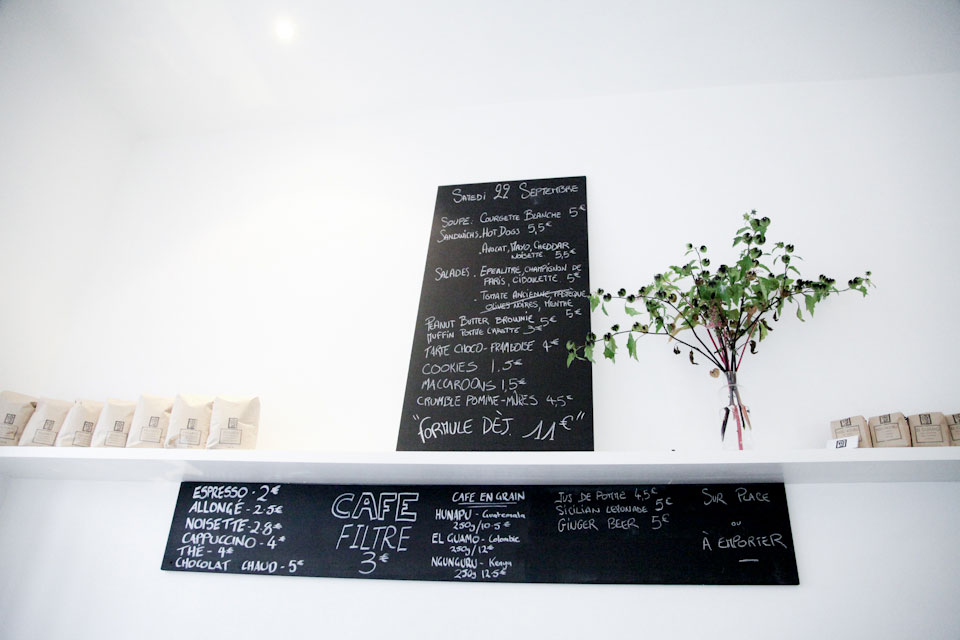 SAMEDI 22 SEPTEMBRE
SOUPE. COURGETTE BLANCHE 5€
SANDWICHS. HOT DOGS 5,5€
. AVOCAT, MAYO, CHEDDAR
NOISETTE 5,5€
SALADES . EPEAUTRE, CHAMPIGNON DE
PARIS, CIBOULETTE 5€
. TOMATE ANCIENNE, PASTEQUE,
OLIVES NOIRES, MENTHE
5€
PEANUT BUTTER BROWNIE 5€
MUFFIN POMME CAROTTE 3€
TARTE CHOCO-FRAMBOISE 4€
COOKIES 1.5€
MACCAROONS 1,5€
CRUMBLE POMME-MÛRES 4,5€
"FORMULE DÈJ. 11€"
ESPRESSO - 2€
ALLONGÉ - 2.5€
NOISETTE - 2.8€
CAPPUCCINO - 4€
THÉ - 4€
CHOCOLAT CHAUD - 5€
CAFE
FILTRE
3€
CAFE EN GRAIN
HUNAPU - Guatemala
250g/10.5€
EL GUAMO - Colombie
250g/12€
NGUNGURU - Kenya
250g 12.5€
JUS DE POMME 4,5€
SICILIAN LEMONADE 5€
GINGER BEER 5€
SUR PLACE
OU
À EMPORTER